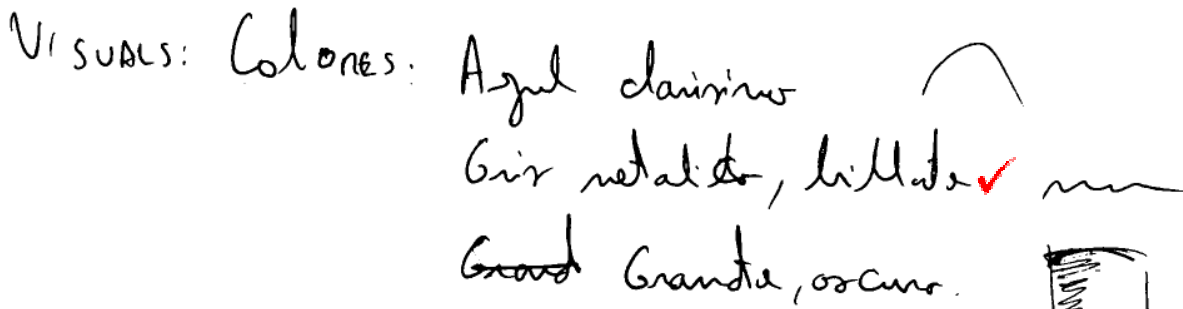 VISUALS: Colores: Azul clarisimo
Gris metalico, brillante
Granate, oscuro.